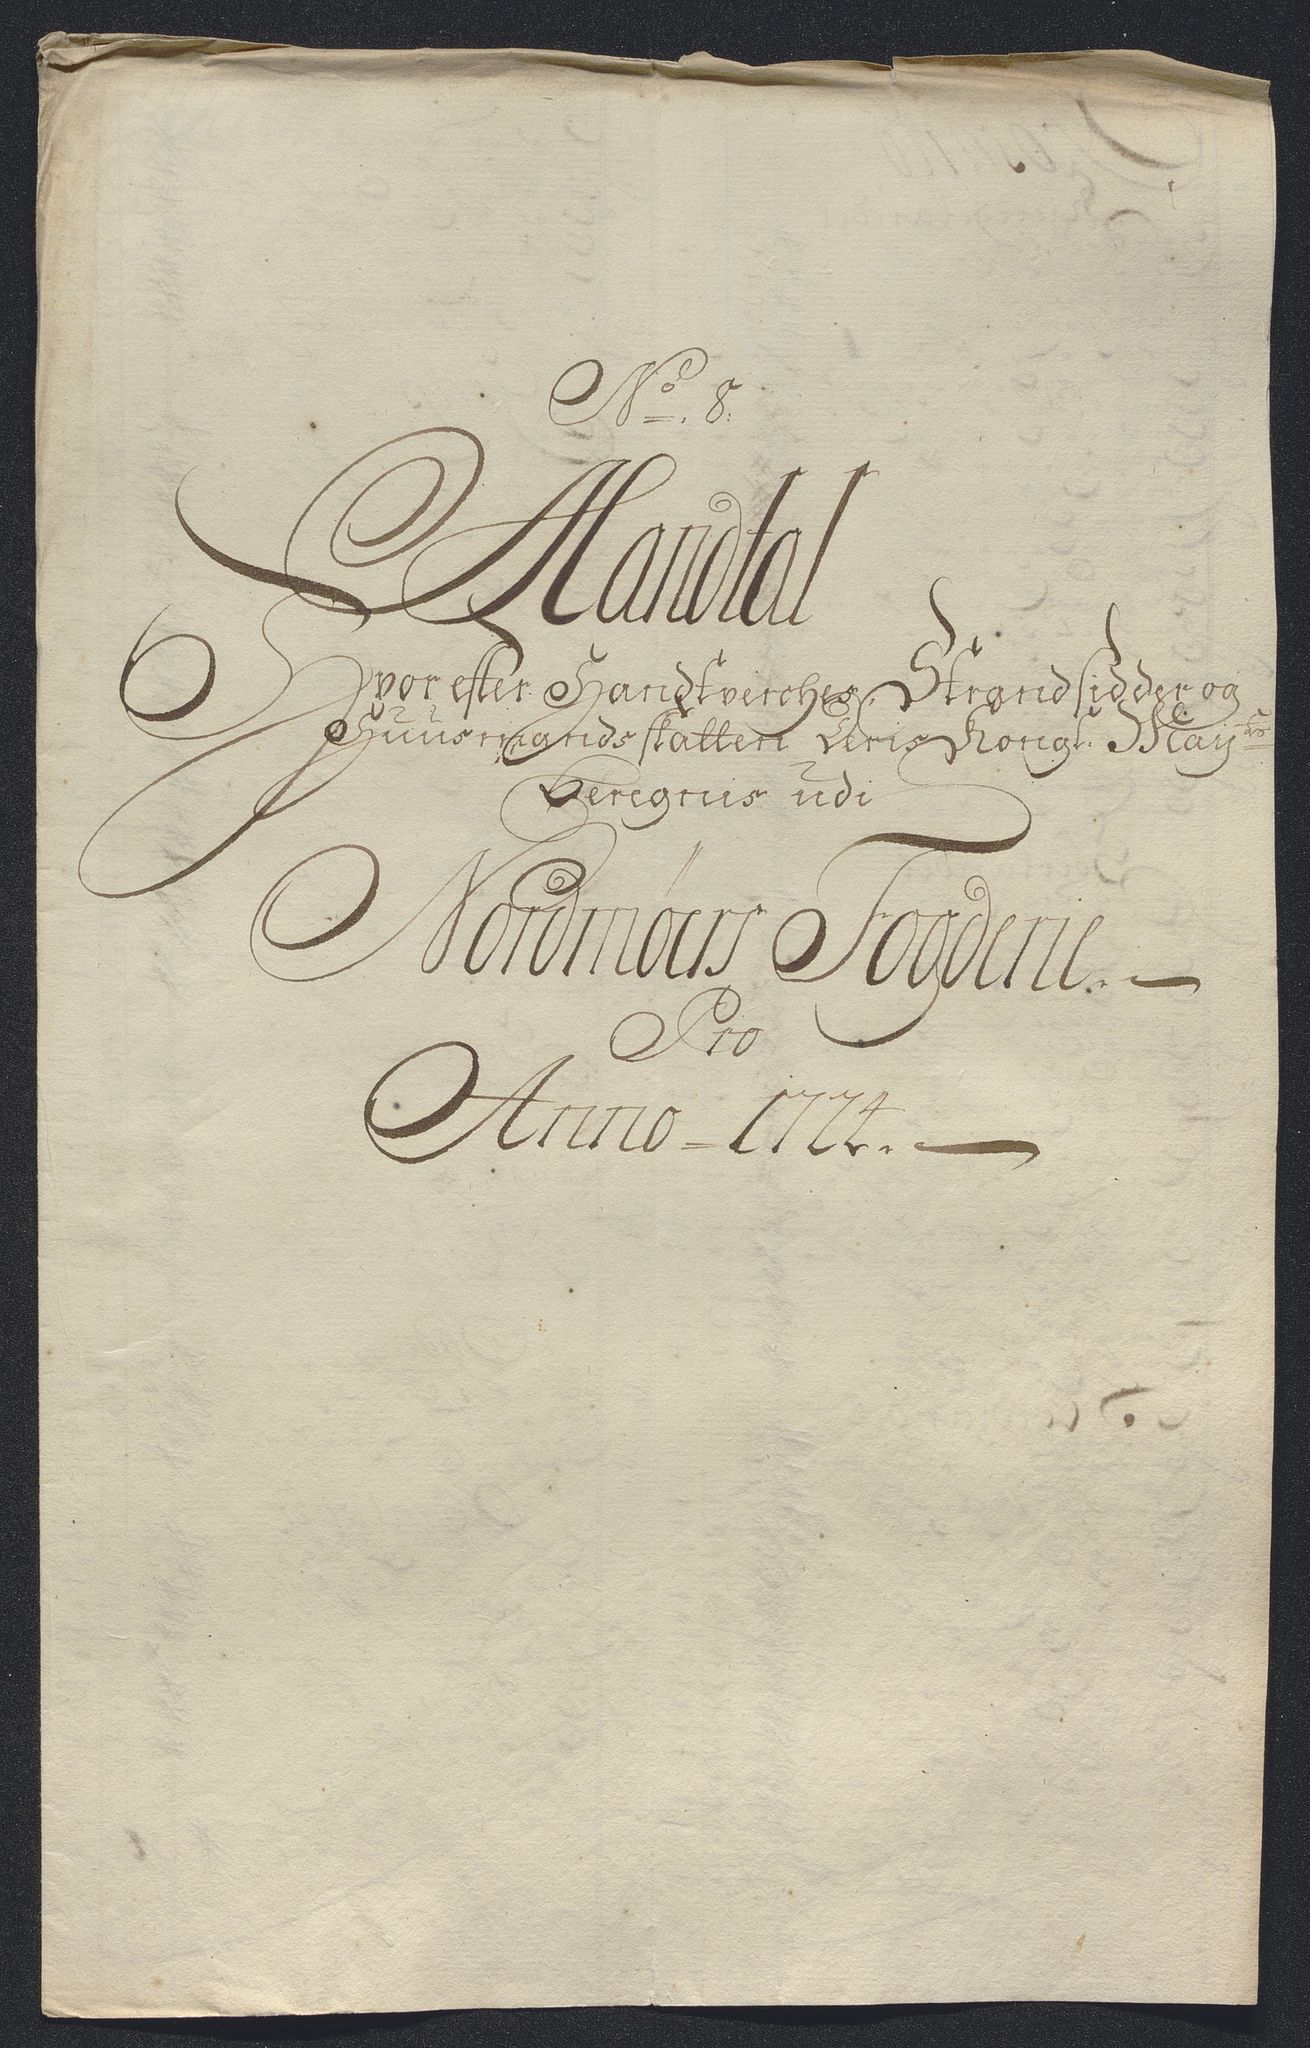 No. 8.
Mandtal
Hvorefter Handtverches, Strandsidder og
Huusmands skatten deris Kongl. May.ts
beregnis udi
Nordmøers Fogderie.
Pro
Anno - 1724.